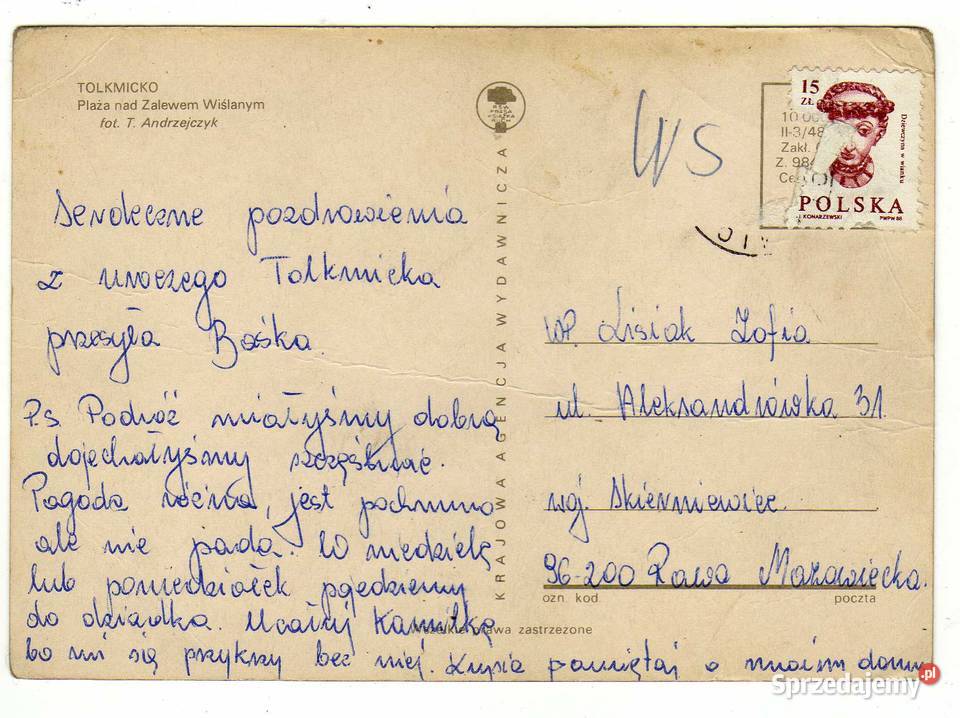 TOLKMICKO
Plaża nad Zalewem Wiślanym
fot. T. Andrzejczyk
Serdeczne pozdrowienia
z uroczego Tolkmicka
przesyła Baśka.
P.s. Podróż miałyśmy dobrą
dojechałyśmy szczęśliwie.
Pogoda różna, jest pochmurno
ale nie pada. W niedzielę
lub poniedziałek pojedziemy
do dziadka. Ucałuj Kamilkę
bo mi się przykrzy bez niej. Zusia pamiętaj o moim domu
KRAJOWA AGENCJA WYDAWNICZA
RSW
PRASA
KSIĄŻKA
RUCH
WS
10 000
II-3/48
Zakł.
Z. 984
Ce
15
ZŁ
Dziewczyna w wianku
POLSKA
J. KONARZEWSKI PWPW 86
WP. Lisiak Zofia
ul. Aleksandrówka 31
woj. Skierniewice.
96-200 Rawa Mazowiecka.
ozn. kod. poczta
Wszelkie prawa zastrzeżone
Sprzedajemy.pl